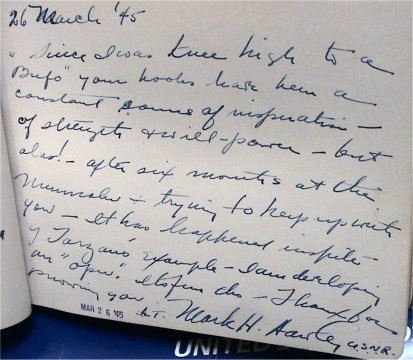 26 March '45
"Since I was knee high to a
Bufo" your books have been a
constant source of inspiration —
of strength & will-power — but
alas! — after six months at the
& trying to keep up with
you — It has happened inspite
of Tarzan's example — I am developing
an "Opu". Its fun tho — Thanx for
knowing you,
MAR 26 '45
Mark H. Hawley USNR.
UNITED